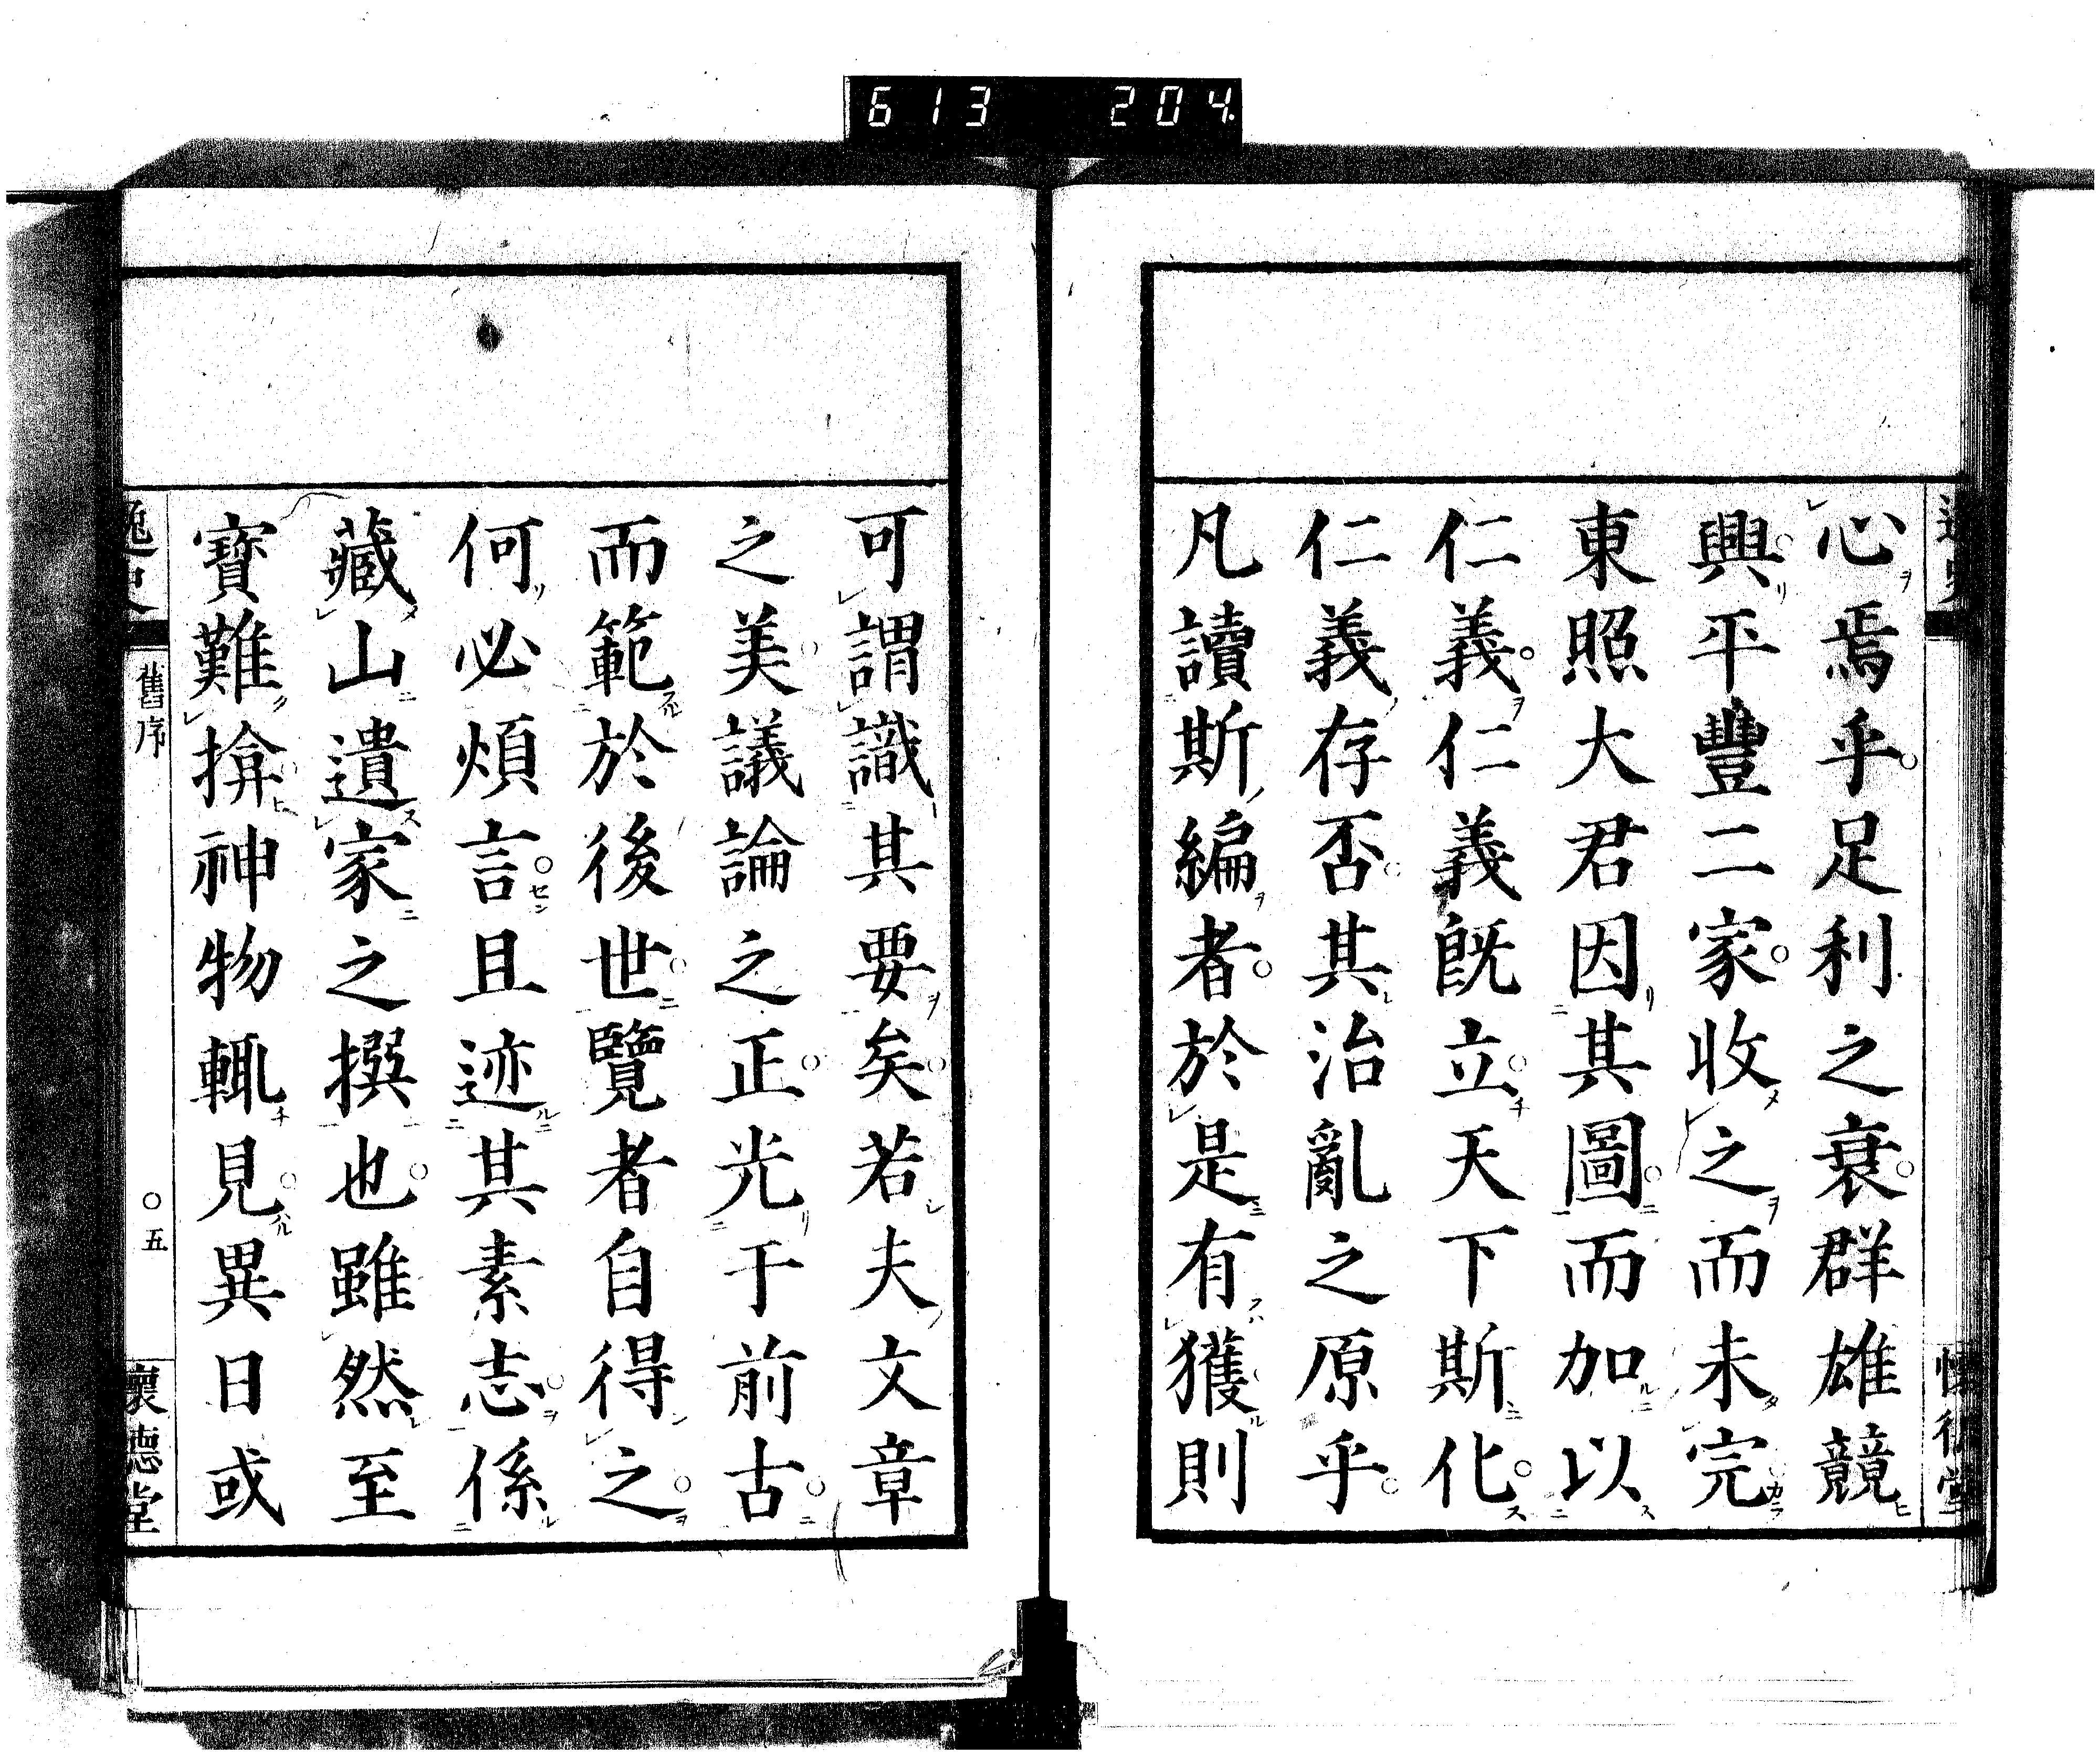 613 204
心焉乎足利之衰群雄競
興平豐二家收之而未完
東照大君因其圖而加以
仁義仁義既立天下斯化
仁義存否其治亂之原乎
凡讀斯編者於是有獲則
可謂識其要矣若夫文章
之美議論之正光于前古
而範於後世覽者自得之
何必煩言且迹其素志係
藏山遺家之撰也雖然至
寶難揜神物輒見異日或
逸史
舊序
〇五
懷德堂